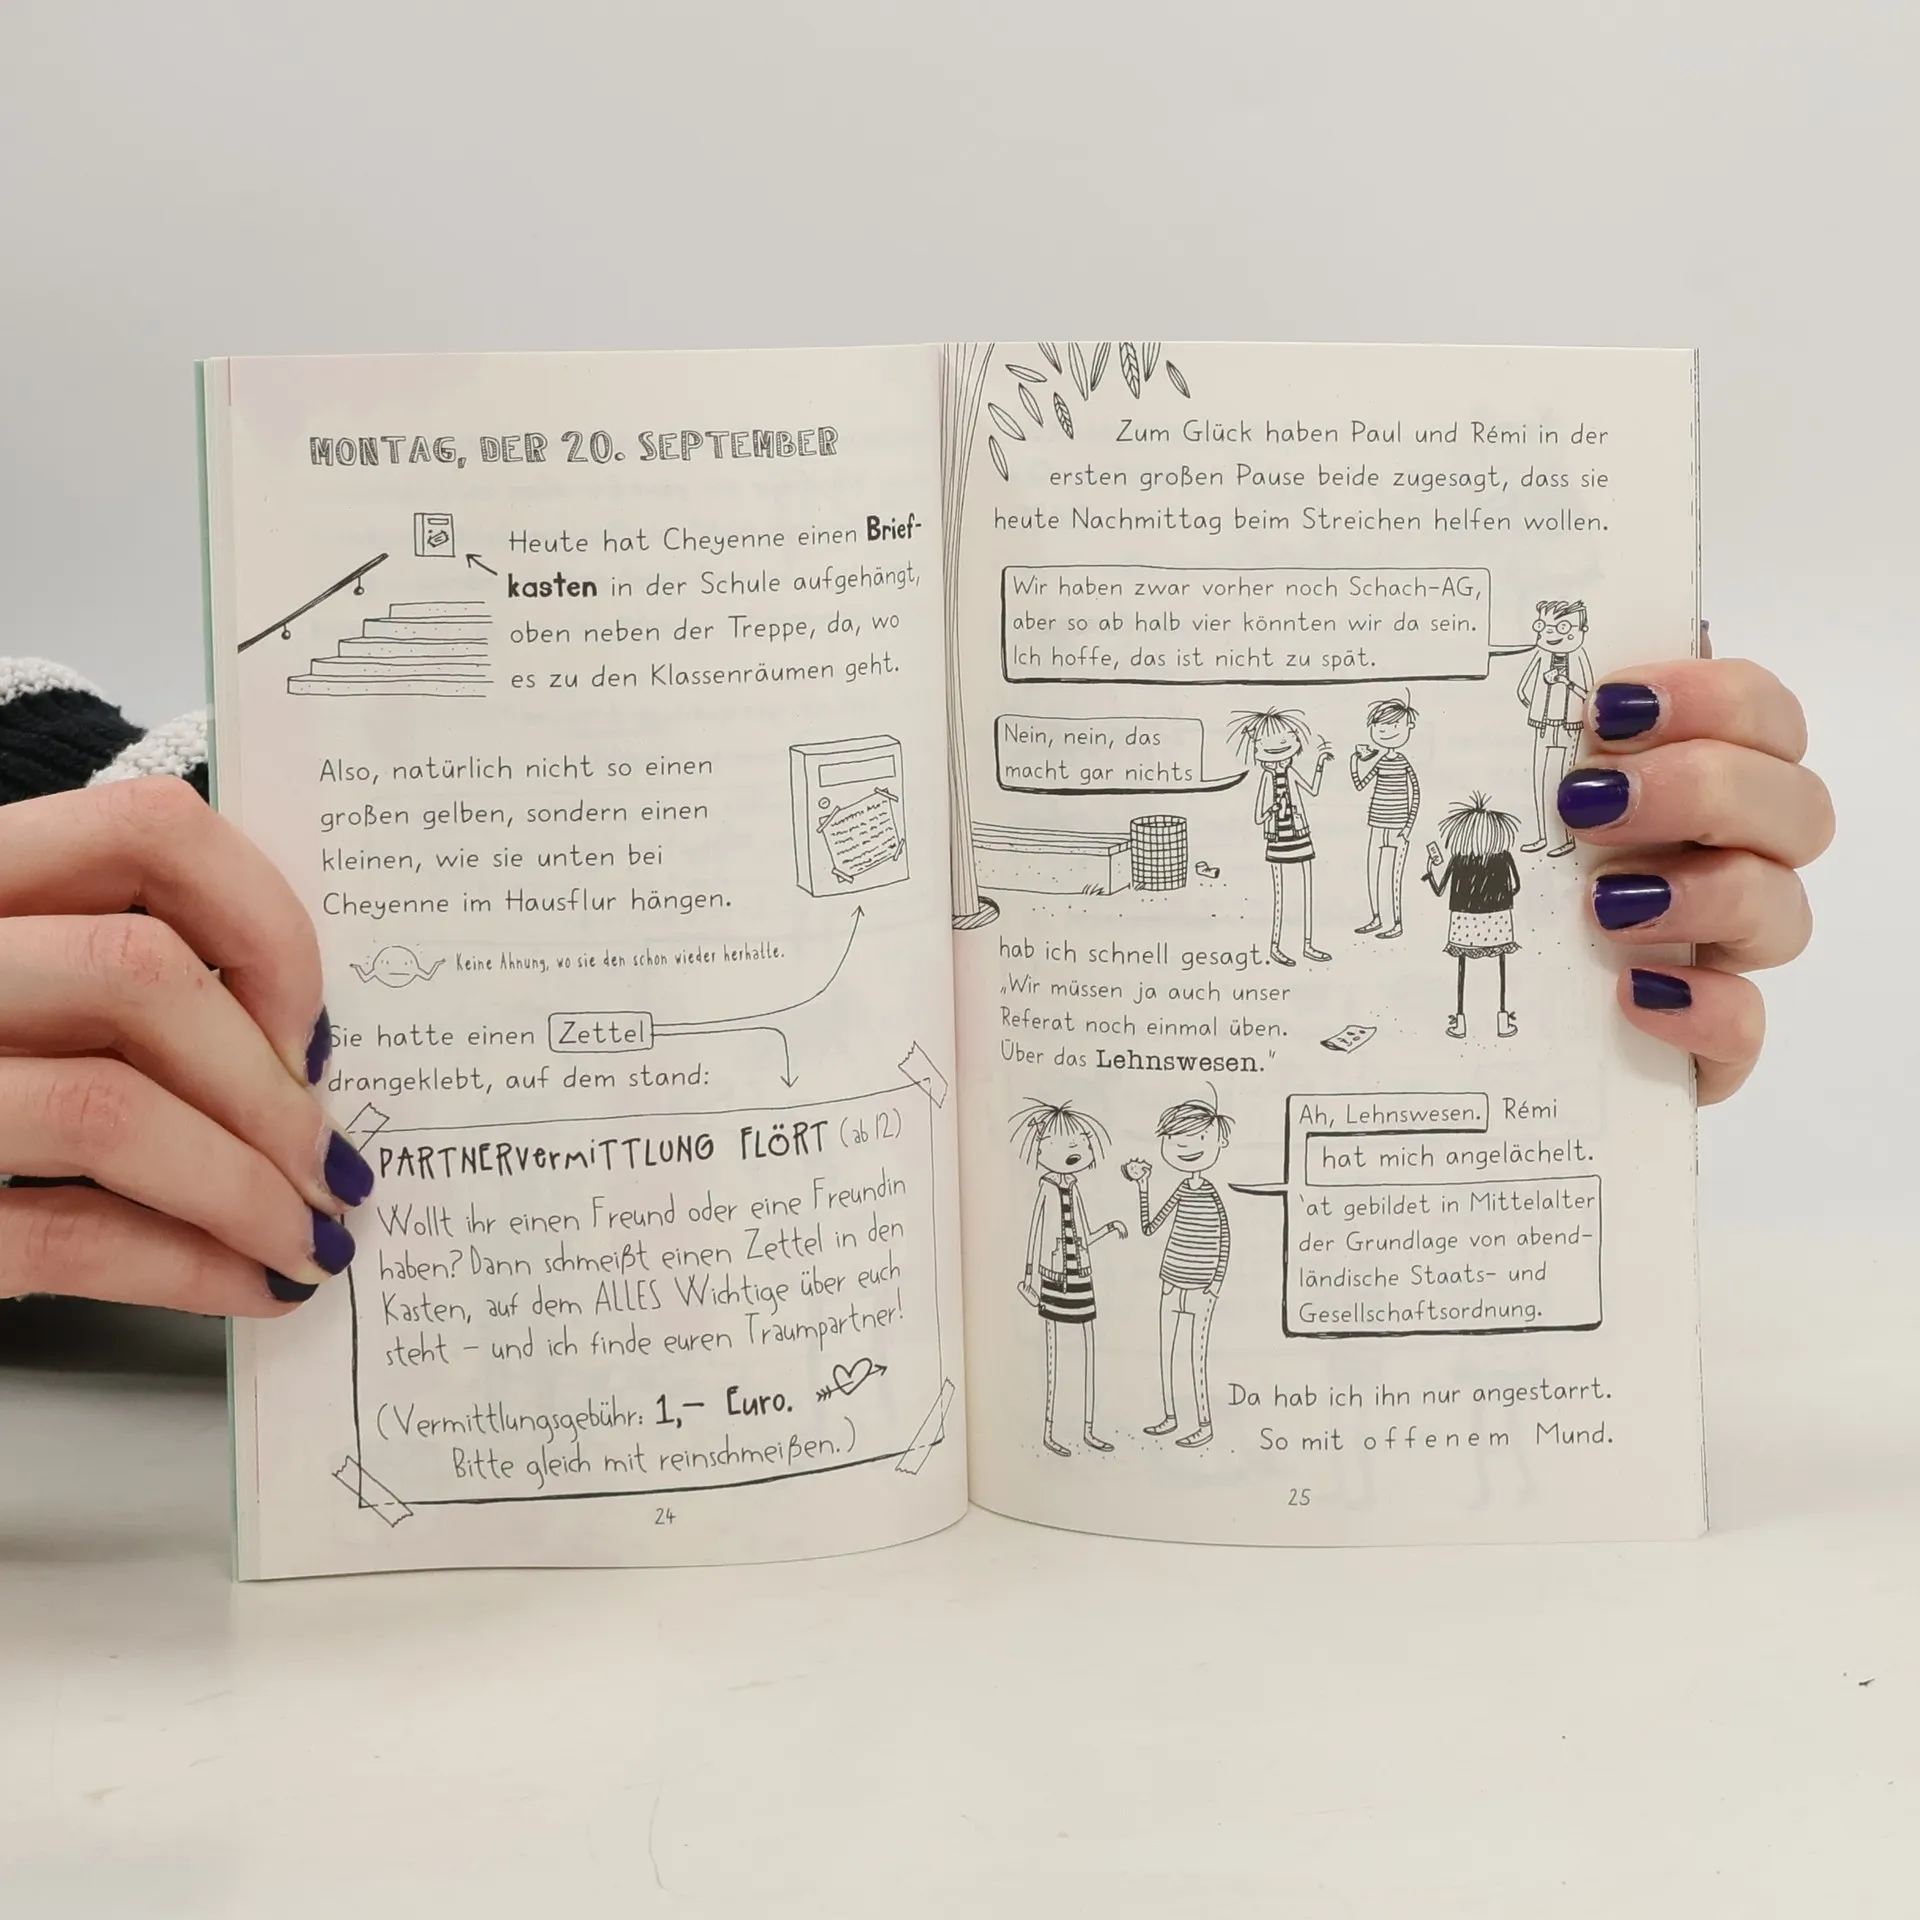 MONTAG, DER 20. SEPTEMBER
Heute hat Cheyenne einen Brief-
kasten in der Schule aufgehängt,
oben neben der Treppe, da, wo
es zu den Klassenräumen geht.
Also, natürlich nicht so einen
großen gelben, sondern einen
kleinen, wie sie unten bei
Cheyenne im Hausflur hängen.
Keine Ahnung, wo sie den schon wieder herhatte.
Sie hatte einen Zettel
drangeklebt, auf dem stand:
PARTNERVERMITTLUNG FLÖRT (ab 12)
Wollt ihr einen Freund oder eine Freundin
haben? Dann schmeißt einen Zettel in den
Kasten, auf dem ALLES Wichtige über euch
steht – und ich finde euren Traumpartner!
(Vermittlungsgebühr: 1,– Euro.
Bitte gleich mit reinschmeißen.)
24
Zum Glück haben Paul und Rémi in der
ersten großen Pause beide zugesagt, dass sie
heute Nachmittag beim Streichen helfen wollen.
Wir haben zwar vorher noch Schach-AG,
aber so ab halb vier könnten wir da sein.
Ich hoffe, das ist nicht zu spät.
Nein, nein, das
macht gar nichts
hab ich schnell gesagt.
„Wir müssen ja auch unser
Referat noch einmal üben.
Über das Lehnswesen."
Ah, Lehnswesen. Rémi
hat mich angelächelt.
'at gebildet in Mittelalter
der Grundlage von abend-
ländische Staats- und
Gesellschaftsordnung.
Da hab ich ihn nur angestarrt.
So mit offenem Mund.
25